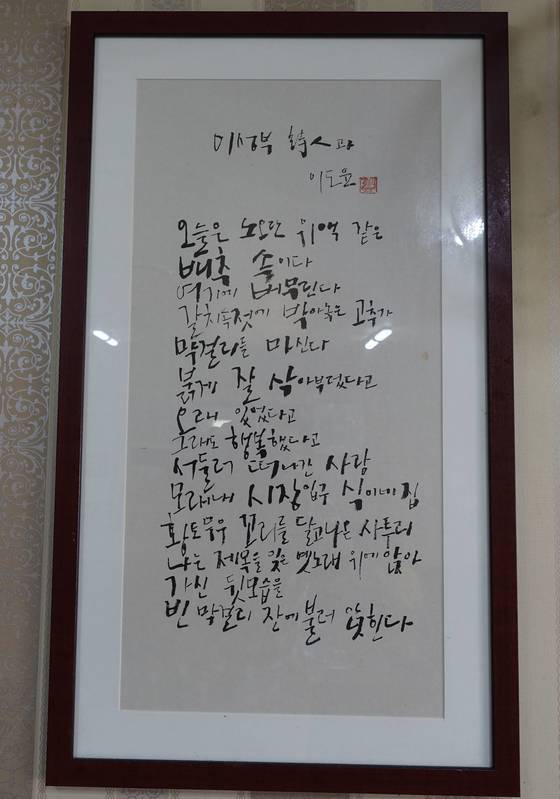 이성부 詩人과
이도윤
오늘은 노오란 위액 같은
배추 속이다
여기에 버무린다
갈치속젓에 박아놓은 고추가
막걸리를 마신다
붉게 잘 삭아부렀다고
오래 있었다고
노래도 행복했다고
서둘러 떠나간 사람
모래내 시장입구 식이네집
황토무우 꼬리를 달고나온 사투리
나는 제목을 잊은 옛노래 위에 앉아
가신 뒷모습을
빈 막걸리 잔에 불러 앉힌다